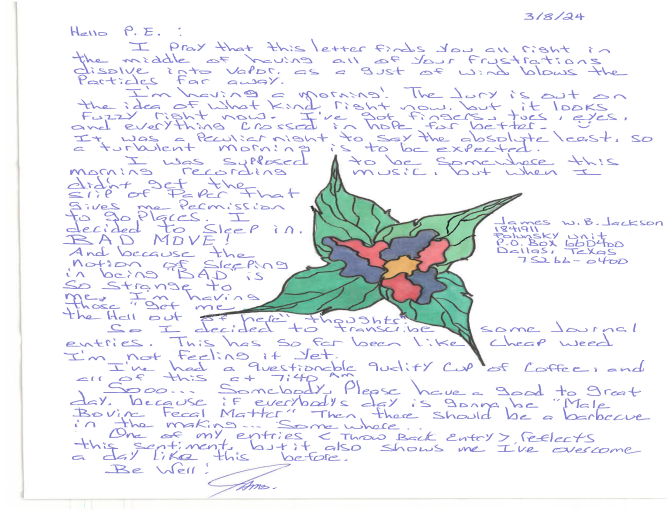 3/8/24
Hello P.E. :
I pray that this letter finds you all right in
the middle of having all of your frustrations
disolve into vapor, as a gust of wind blows the
particles far away.
I'm having a morning! The Jury is out on
the idea of what kind right now, but it looks
fuzzy right now. I've got fingers, toes, eyes,
and everything crossed in hope for better.
It was a peculiar night to say the absolute least, so
a turbulent morning is to be expected.
I was supposed to be somewhere this
morning recording music, but when I
didn't get the
slip of paper that
gives me permission
to go places. I
decided to sleep in.
BAD MOVE!
And because the
notion of sleeping
in being BAD is
so strange to
me, I'm having
those "get me
the Hell out of here" thoughts.
So I decided to transcribe some Journal
entries. This has so far been like cheap weed
I'm not feeling it yet.
I've had a questionable quality cup of coffee, and
all of this at 7:40 AM
Sooo... Somebody, Please have a good to great
day. because if everybody's day is gonna be "Male
Bovine Fecal Matter" Then there should be a barbecue
in the making... Somewhere..
One of my entries < Throw Back Entry > reflects
this sentiment, but it also shows me I've overcome
a day like this before.
Be Well!
James W.B. Jackson
1841911
Polunsky Unit
P.O. Box 660400
Dallas, Texas
75266-0400